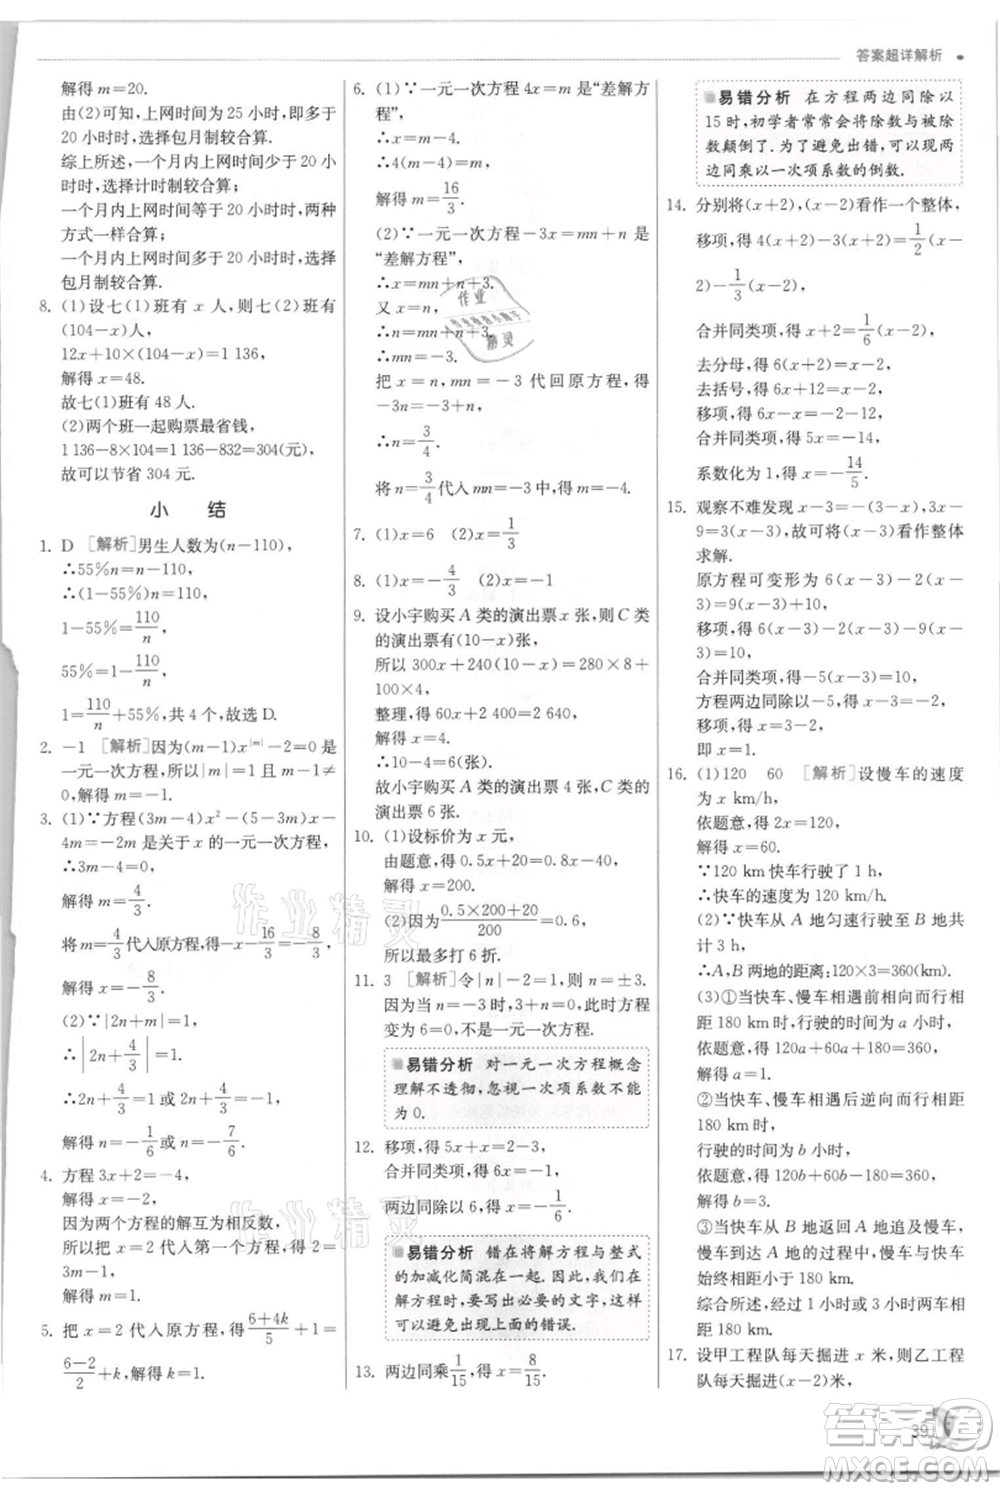 答案超详解析
解得 m=20.
由(2)可知,上网时间为 25 小时,多于
20 小时时,选择包月制较合算.
综上所述,一个月内上网时间少于 20
小时时,选择计时制较合算;
一个月内上网时间等于 20 小时时,两种
方式一样合算;
一个月内上网时间多于 20 小时时,选择
包月制较合算.
8. (1)设七(1)班有 x 人,则七(2)班有
(104-x)人,
12x+10×(104-x)=1 136,
解得 x=48.
故七(1)班有 48 人.
(2)两个班一起购票最省钱,
1 136-8×104=1 136-832=304(元),
故可以节省 304 元.
小 结
1. D [解析]男生人数为(n-110),
∴55%n=n-110,
∴(1-55%)n=110,
1-55%=110/n,
55%=1-110/n,
1=110/n+55%,共 4 个,故选 D.
2. -1 [解析]因为(m-1)x^|m|-2=0 是
一元一次方程,所以|m|=1 且 m-1≠
0,解得 m=-1.
3. (1)∵方程(3m-4)x²-(5-3m)x-
4m=-2m 是关于 x 的一元一次方程,
∴3m-4=0,
解得 m=4/3.
将 m=4/3代入原方程,得-x-16/3=-8/3,
解得 x=-8/3.
(2)∵|2n+m|=1,
∴|2n+4/3|=1.
∴2n+4/3=1 或 2n+4/3=-1,
解得 n=-1/6或 n=-7/6.
4. 方程 3x+2=-4,
解得 x=-2,
因为两个方程的解互为相反数,
所以把 x=2 代入第一个方程,得 2=
3m-1,
解得 m=1.
5. 把 x=2 代入原方程,得(6+4k)/5+1=
(6-2)/2+k,解得 k=1.
6. (1)∵一元一次方程 4x=m 是“差解方
程”,
∴x=m-4.
∴4(m-4)=m.
解得 m=16/3.
(2)∵一元一次方程-3x=mn+n 是
“差解方程”,
∴x=mn+n+3.
又 x=n,
∴n=mn+n+3.
∴mn=-3.
把 x=n,mn=-3 代回原方程,得
-3n=-3+n,
∴n=3/4.
将 n=3/4代入 mn=-3 中,得 m=-4.
7. (1)x=6 (2)x=1/3
8. (1)x=-4/3 (2)x=-1
9. 设小宇购买 A 类的演出票 x 张,则 C 类
的演出票有(10-x)张,
所以 300x+240(10-x)=280×8+
100×4.
整理,得 60x+2 400=2 640,
解得 x=4.
∴10-4=6(张).
故小宇购买 A 类的演出票 4 张,C 类的
演出票 6 张.
10. (1)设标价为 x 元,
由题意,得 0.5x+20=0.8x-40,
解得 x=200.
(2)因为(0.5×200+20)/200=0.6,
所以最多打 6 折.
11. 3 [解析]令|n|-2=1,则 n=±3.
因为当 n=-3 时,n+3=0,此时方程
变为 6=0,不是一元一次方程.
易错分析 对一元一次方程概念
理解不透彻,忽视一次项系数不能
为 0.
12. 移项,得 5x+x=2-3,
合并同类项,得 6x=-1,
两边同除以 6,得 x=-1/6.
易错分析 错在将解方程与整式
的加减化简混在一起.因此,我们在
解方程时,要写出必要的文字,这样
可以避免出现上面的错误.
13. 两边同乘1/15,得 x=8/15.
易错分析 在方程两边同除以
15 时,初学者常常会将除数与被除
数颠倒了.为了避免出错,可以两边
同乘以一次项系数的倒数.
14. 分别将(x+2),(x-2)看作一个整体,
移项,得 4(x+2)-3(x+2)=1/2(x
-2)-1/3(x-2),
合并同类项,得 x+2=1/6(x-2),
去分母,得 6(x+2)=x-2,
去括号,得 6x+12=x-2,
移项,得 6x-x=-2-12,
合并同类项,得 5x=-14,
系数化为 1,得 x=-14/5.
15. 观察不难发现 x-3=-(3-x),3x-
9=3(x-3),故可将(x-3)看作整体
求解.
原方程可变形为 6(x-3)-2(x-3)
=9(x-3)+10,
移项,得 6(x-3)-2(x-3)-9(x-3)=10,
合并同类项,得-5(x-3)=10,
方程两边同除以-5,得 x-3=-2,
移项,得 x=-2+3,
即 x=1.
16. (1)120 60 [解析]设慢车的速度
为 x km/h,
依题意,得 2x=120,
解得 x=60.
∵120 km 快车行驶了 1 h,
∴快车的速度为 120 km/h.
(2)∵快车从 A 地匀速行驶至 B 地共
计 3 h,
∴A,B 两地的距离:120×3=360(km).
(3)①当快车、慢车相遇前相向而行相
距 180 km 时,行驶的时间为 a 小时,
依题意,得 120a+60a+180=360,
解得 a=1.
②当快车、慢车相遇后逆向而行相距
180 km时,
行驶的时间为 b 小时,
依题意,得 120b+60b=360+180,
解得 b=3.
③当快车从 B 地返程去追及慢车,
慢车到达 A 地的过程中,慢车与快车
始终相距小于 180 km.
综合所述,经过 1 小时或 3 小时相距
180 km.
17. 设甲工程队每天掘进 x 米,则乙工程
队每天掘进(x-2)米,
39
作业精灵
作业精灵
答案圈
MXQE.COM